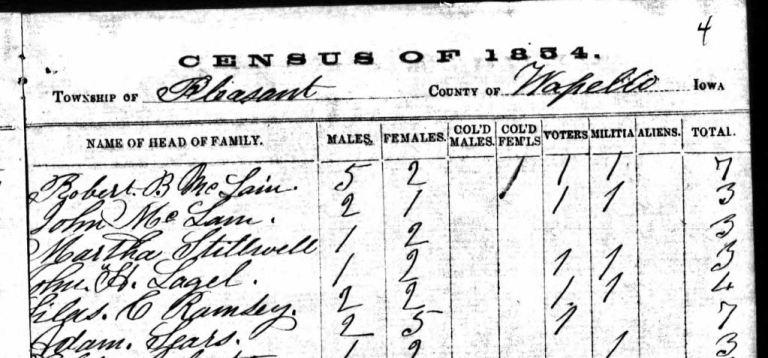 4
CENSUS OF 1854.
TOWNSHIP OF Pleasant COUNTY OF Wapello IOWA
NAME OF HEAD OF FAMILY. MALES. FEMALES. COL'D MALES. COL'D FEM'LS VOTERS MILITIA ALIENS. TOTAL.
Robert B Mc Lain. 5 2 1 1 1 7
John Mc Lain. 2 1 1 1 3
Martha Stillwell 1 2 3
John. H. Lagel. 1 2 1 1 3
Silas. C Ramsey. 2 2 1 1 4
Adam. Sears. 2 5 1 7
1 2 1 3